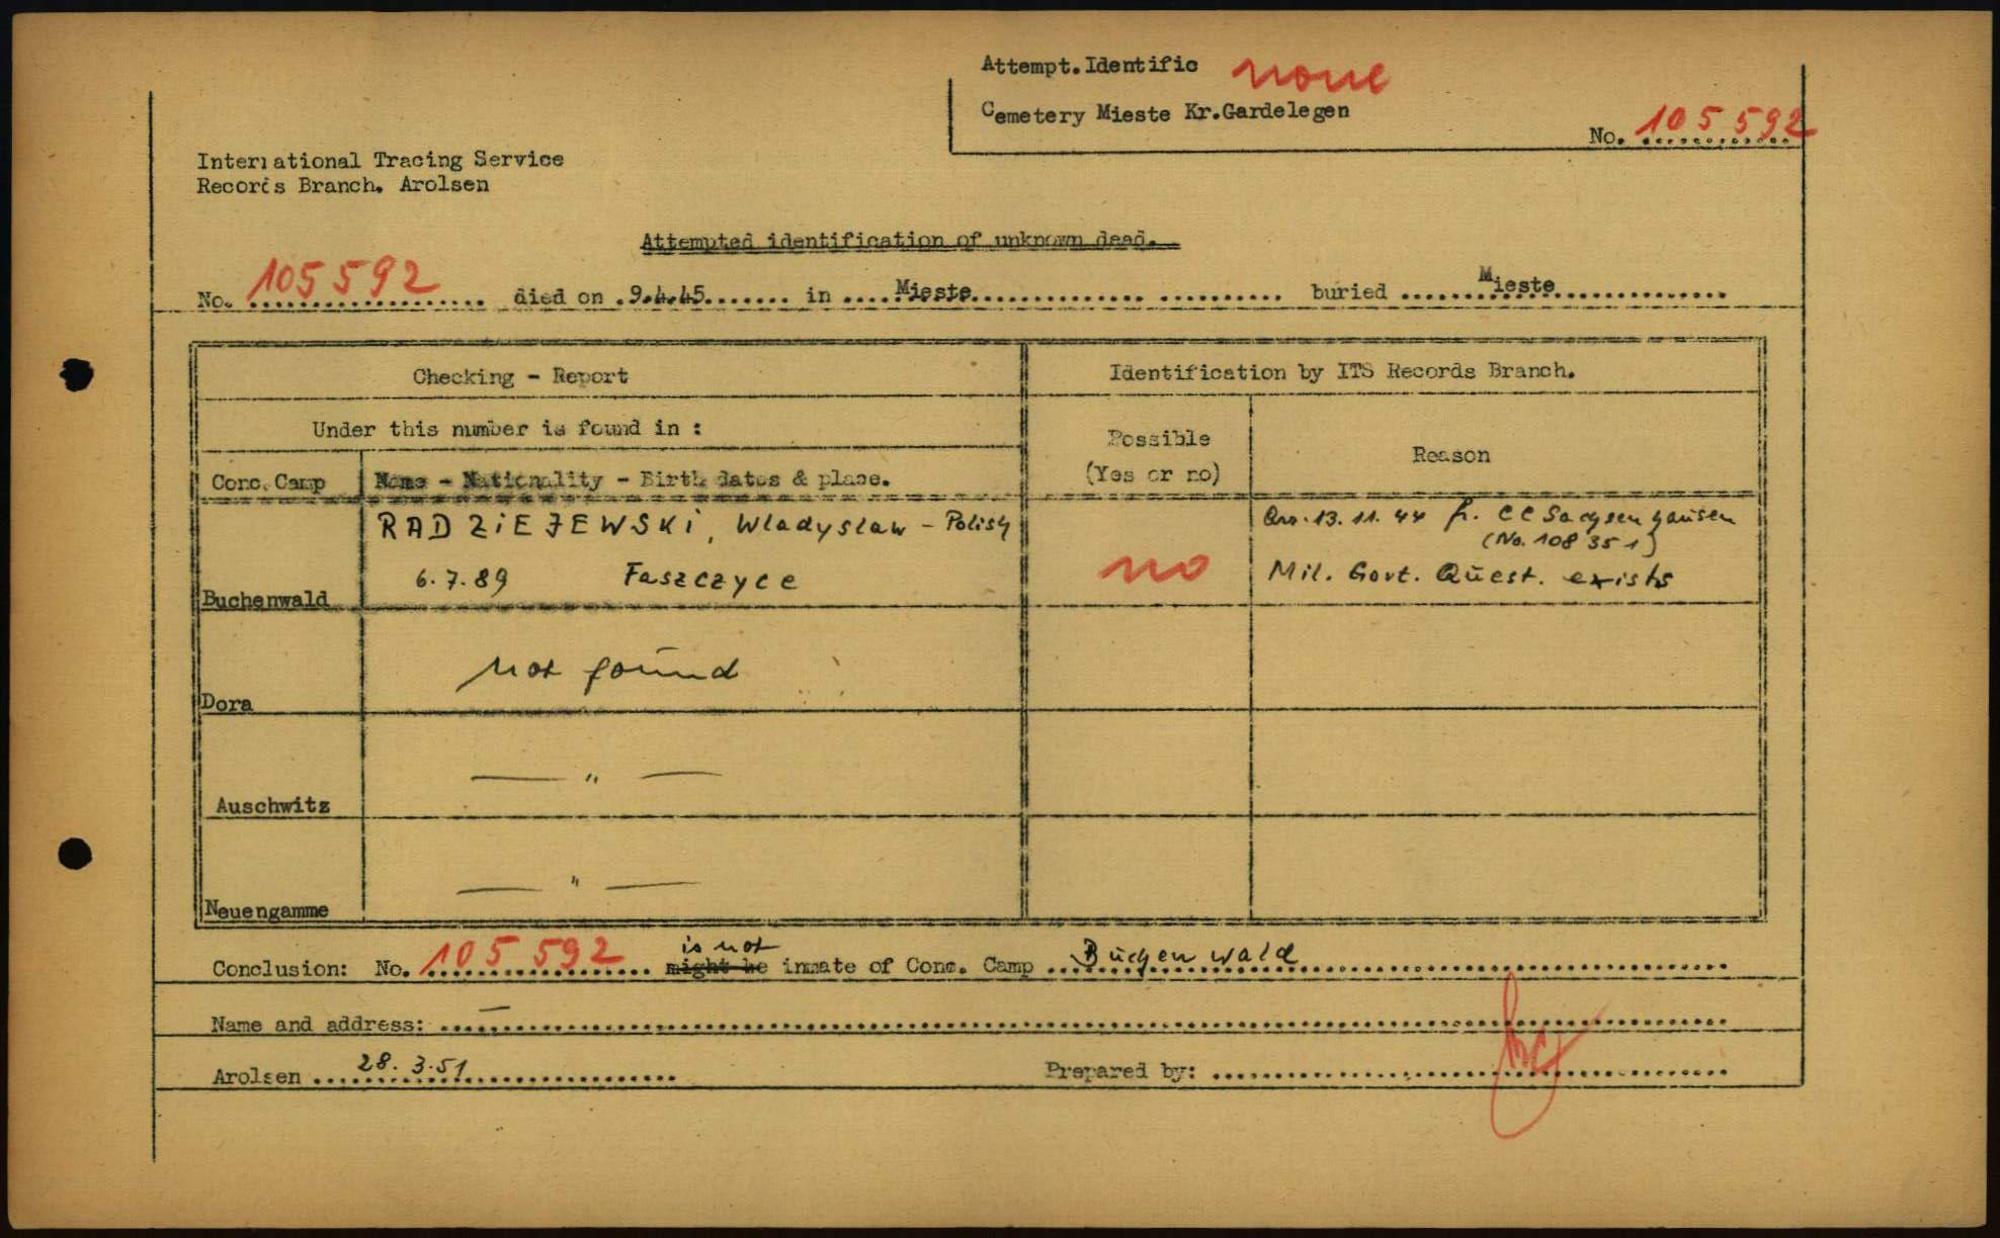 Attempt.Identific none
Cemetery Mieste Kr.Gardelegen
No. 105 592
International Tracing Service
Records Branch, Arolsen
Attempted identification of unknown dead.
No. 105 592 died on 9.4.45 in Mieste buried Mieste
Checking - Report
Identification by ITS Records Branch.
Under this number is found in :
Possible
(Yes or no)
Reason
Conc.Camp Name - Nationality - Birth dates & place.
RADZIEJEWSKI, Wladyslaw - Polish
6.7.89 Faszczyce
Buchenwald
no
Arr. 13.11.44 fr. CC Sachsenhausen
(No. 108 351)
Mil. Govt. Quest. exists
Dora not found
Auschwitz — " —
Neuengamme — " —
is not
Conclusion: No. 105 592 might be inmate of Conc. Camp Buchenwald
Name and address: —
Arolsen 28.3.51 Prepared by: